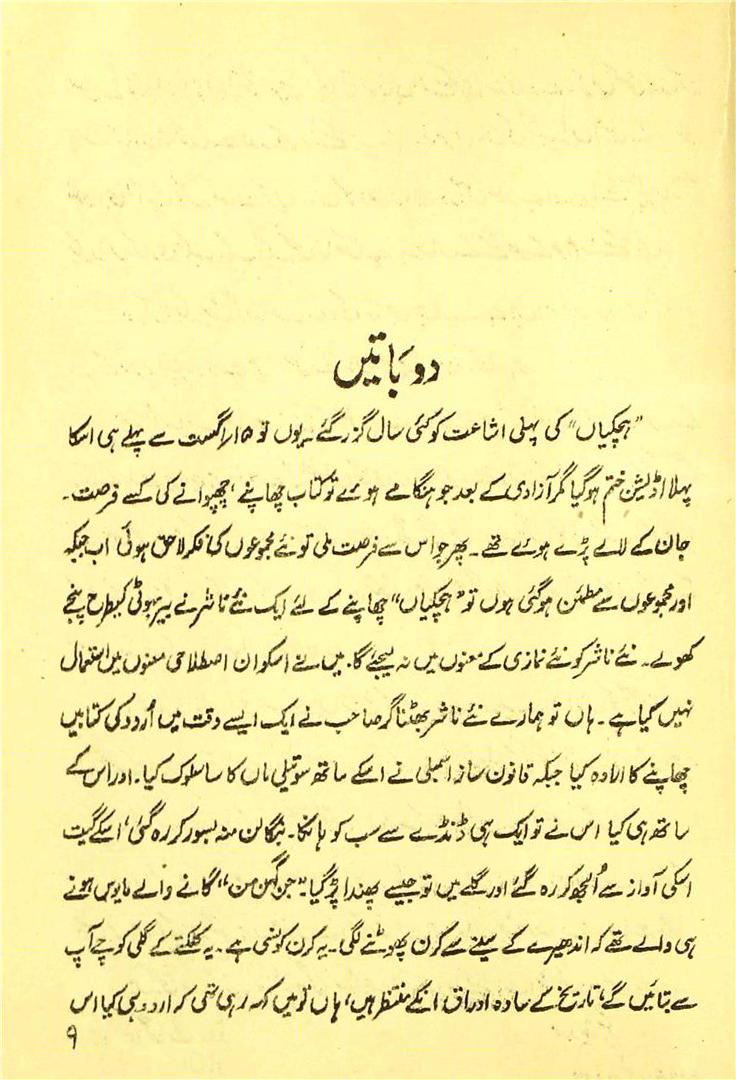 دو باتیں
"ہچکیاں" کی پہلی اشاعت کو کئی سال گزر گئے۔ یوں تو ۱۵ اگست سے پہلے ہی اسکا
پہلا اڈیشن ختم ہو گیا مگر آزادی کے بعد جو ہنگامے ہوئے تو کتاب چھاپنے، چھپوانے کی کسے فرصت۔
جان کے لالے پڑے ہوئے تھے۔ پھر جو اس سے فرصت ملی تو نئے مجموعوں کی فکر لاحق ہوئی اب جبکہ
اور مجموعوں سے مطمئن ہو گئی ہوں تو "ہچکیاں" چھاپنے کے لئے ایک نئے ناشر نے بیر بہوٹی کیطرح پنجے
کھولے۔ نئے ناشر کو نئے نمازی کے معنوں میں نہ لیجئے گا۔ میں نے اسکو ان اصطلاحی معنوں میں استعمال
نہیں کیا ہے۔ ہاں تو ہمارے نئے ناشر بھٹناگر صاحب نے ایک ایسے وقت میں اُردو کی کتابیں
چھاپنے کا ارادہ کیا جبکہ قانون ساز اسمبلی نے اسکے ساتھ سوتیلی ماں کا سا سلوک کیا۔ اور اس کے
ساتھ ہی کیا اس نے تو ایک ہی ڈنڈے سے سب کو ہانکا۔ بنگالن منہ بسور کر رہ گئی، اسکے گیت
اسکی آواز سے اُلجھ کر رہ گئے اور گلے میں تو جیسے پھندا پڑ گیا۔ "جن گن من" گانے والے مایوس ہونے
ہی والے تھے کہ اندھیرے کے سینے سے کرن پھوٹنے لگی۔ یہ کرن کونسی ہے۔ یہ کلکتے کے گلی کوچے آپ
سے بتائیں گے، تاریخ کے سادہ اوراق انکے منتظر ہیں، ہاں تو میں کہہ رہی تھی کہ اردو ہی کیا اس
۹